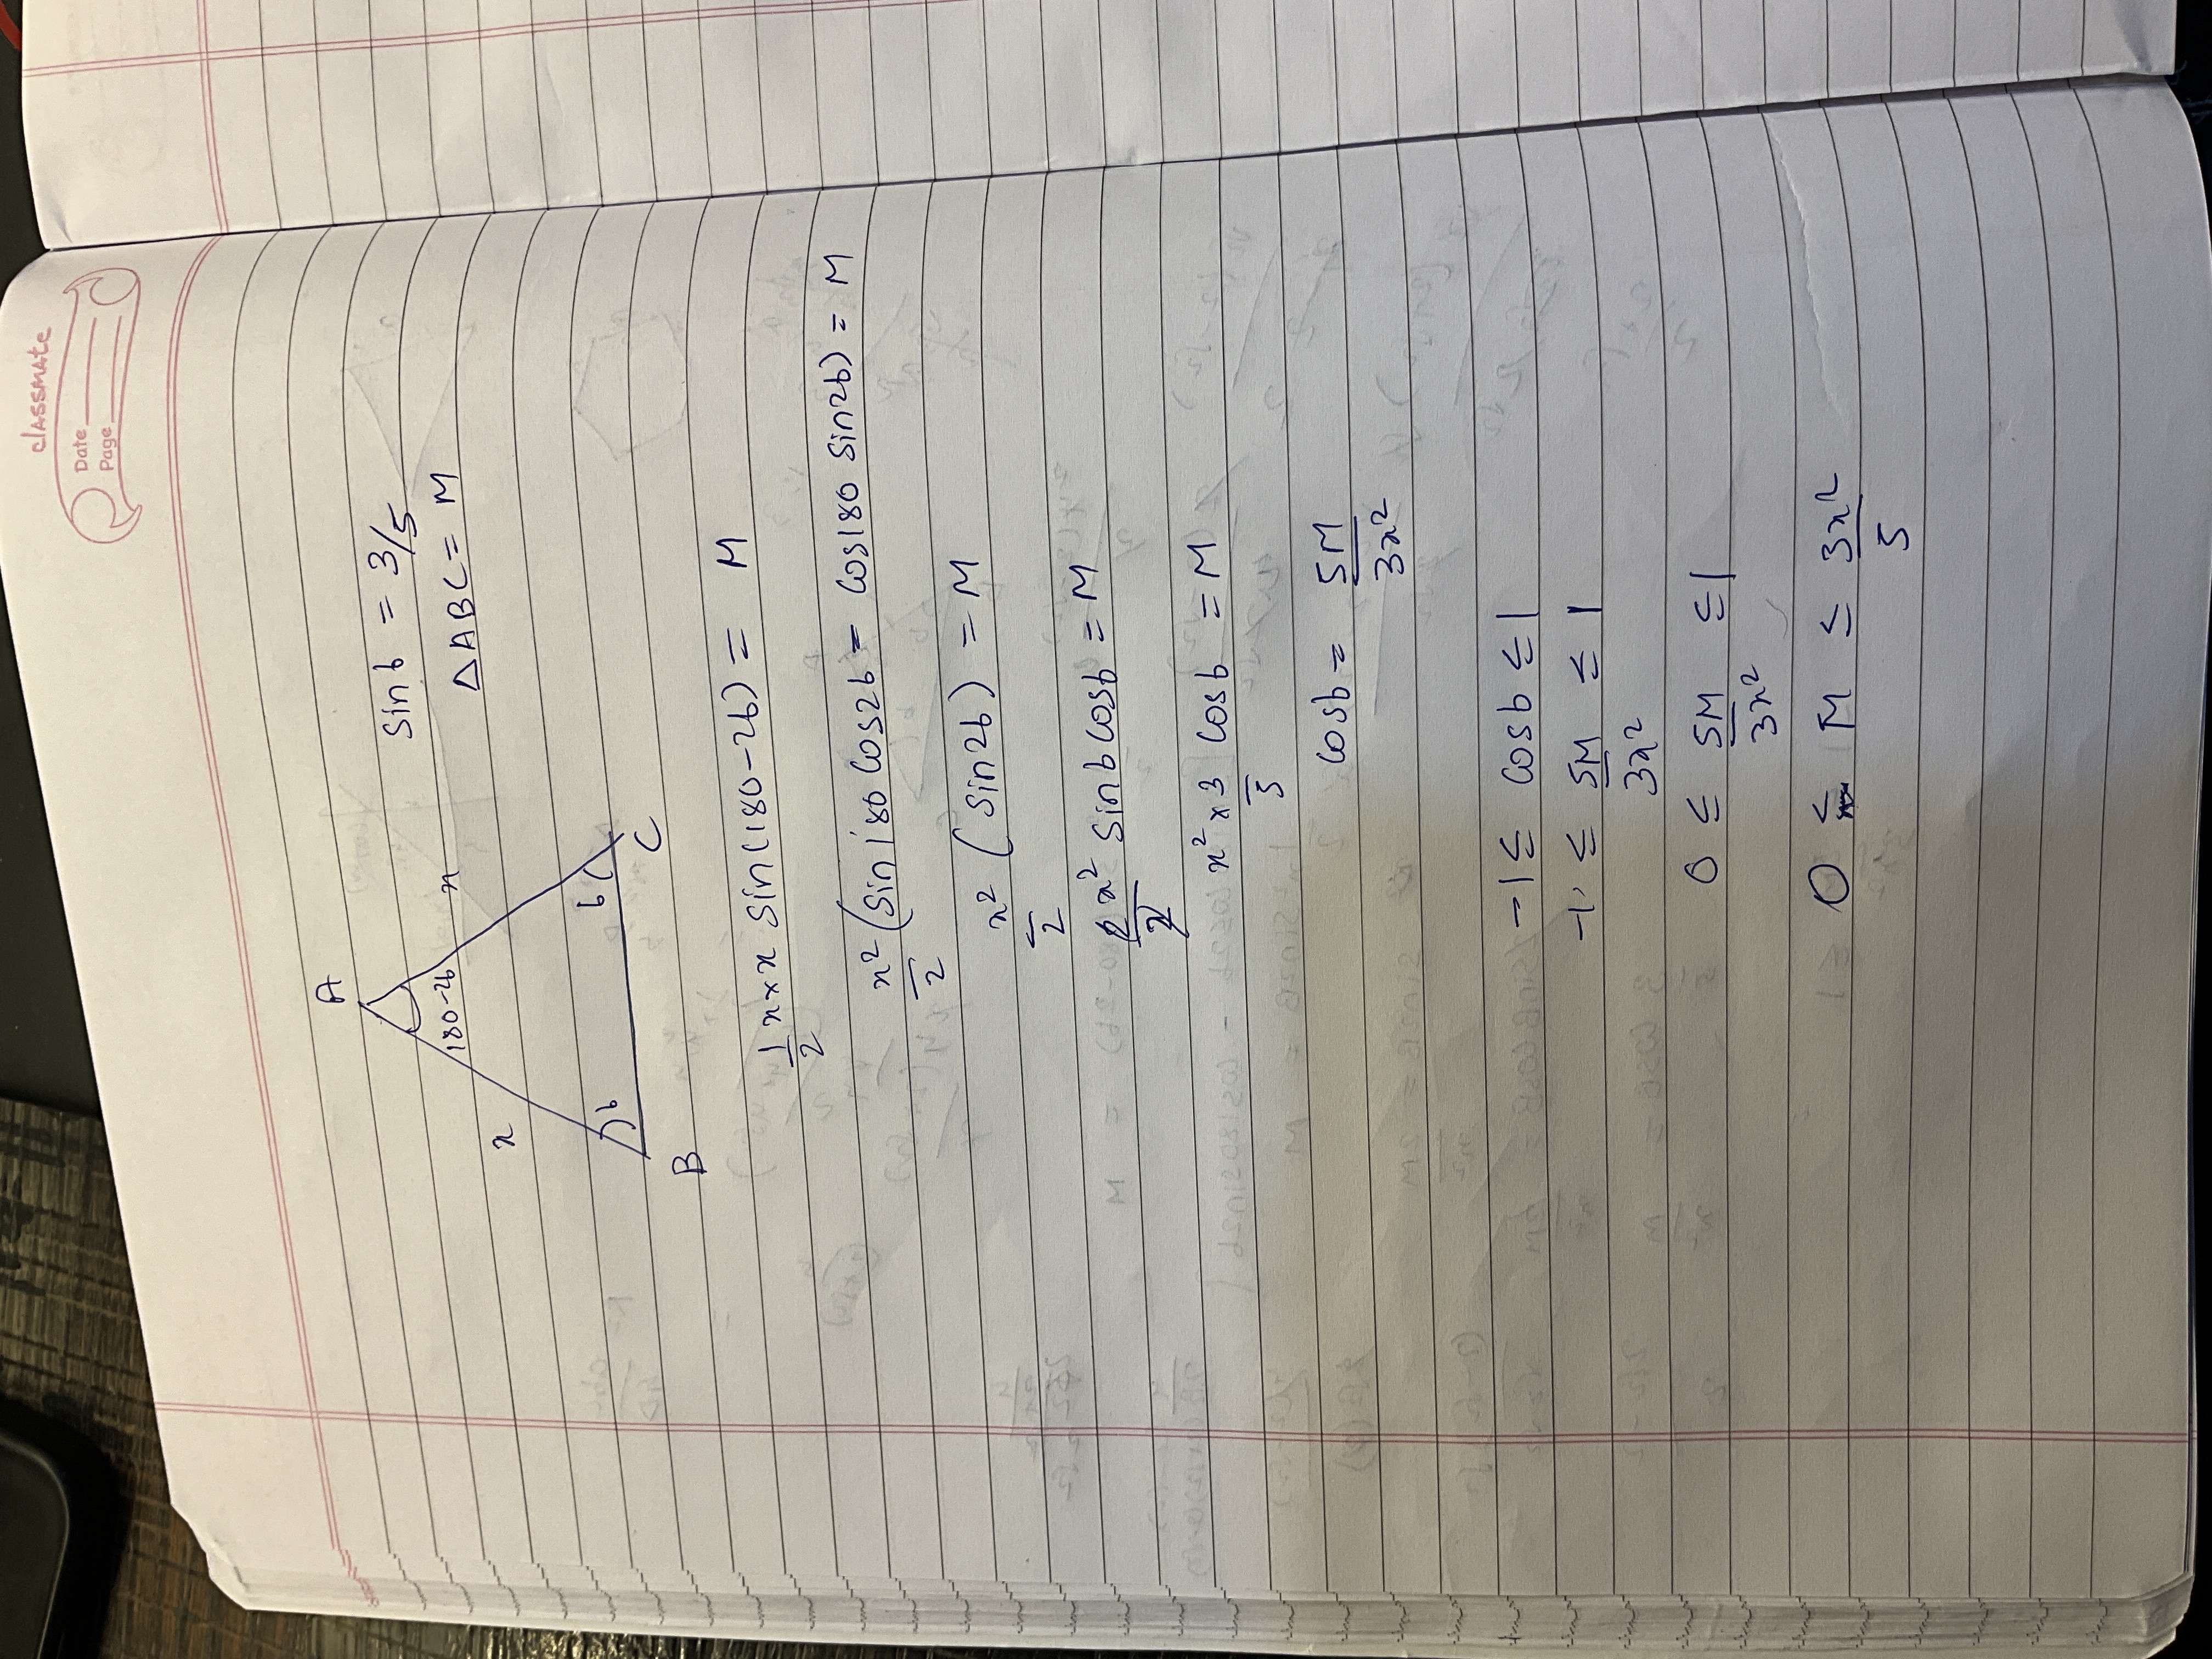 classmate
Date
Page
sin b = 3/5
△ABC = M
A
180-2b
x
x
b
b
B
C
1/2 x × x sin(180-2b) = M
x²/2 (sin180 cos2b = cos180 sin2b) = M
x²/2 (sin2b) = M
2x²/2 sinb cosb = M
x² × 3/5 cosb = M
cosb = 5M/3x²
-1 ≤ cosb ≤ 1
-1 ≤ 5M/3x² ≤ 1
0 ≤ 5M/3x² ≤ 1
0 ≤ M ≤ 3x²/5